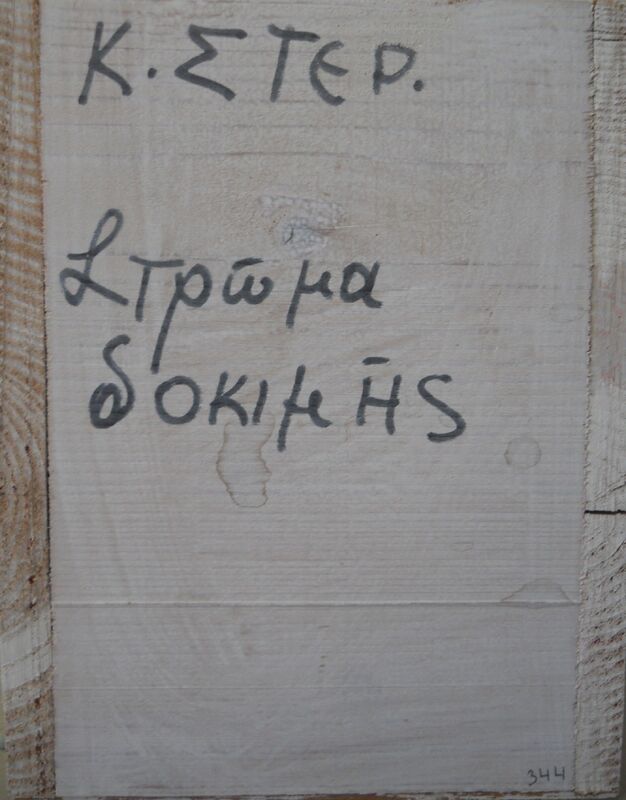 Κ. ΣΤΕΡ.
Στρῶμα
δοκιμῆς
344